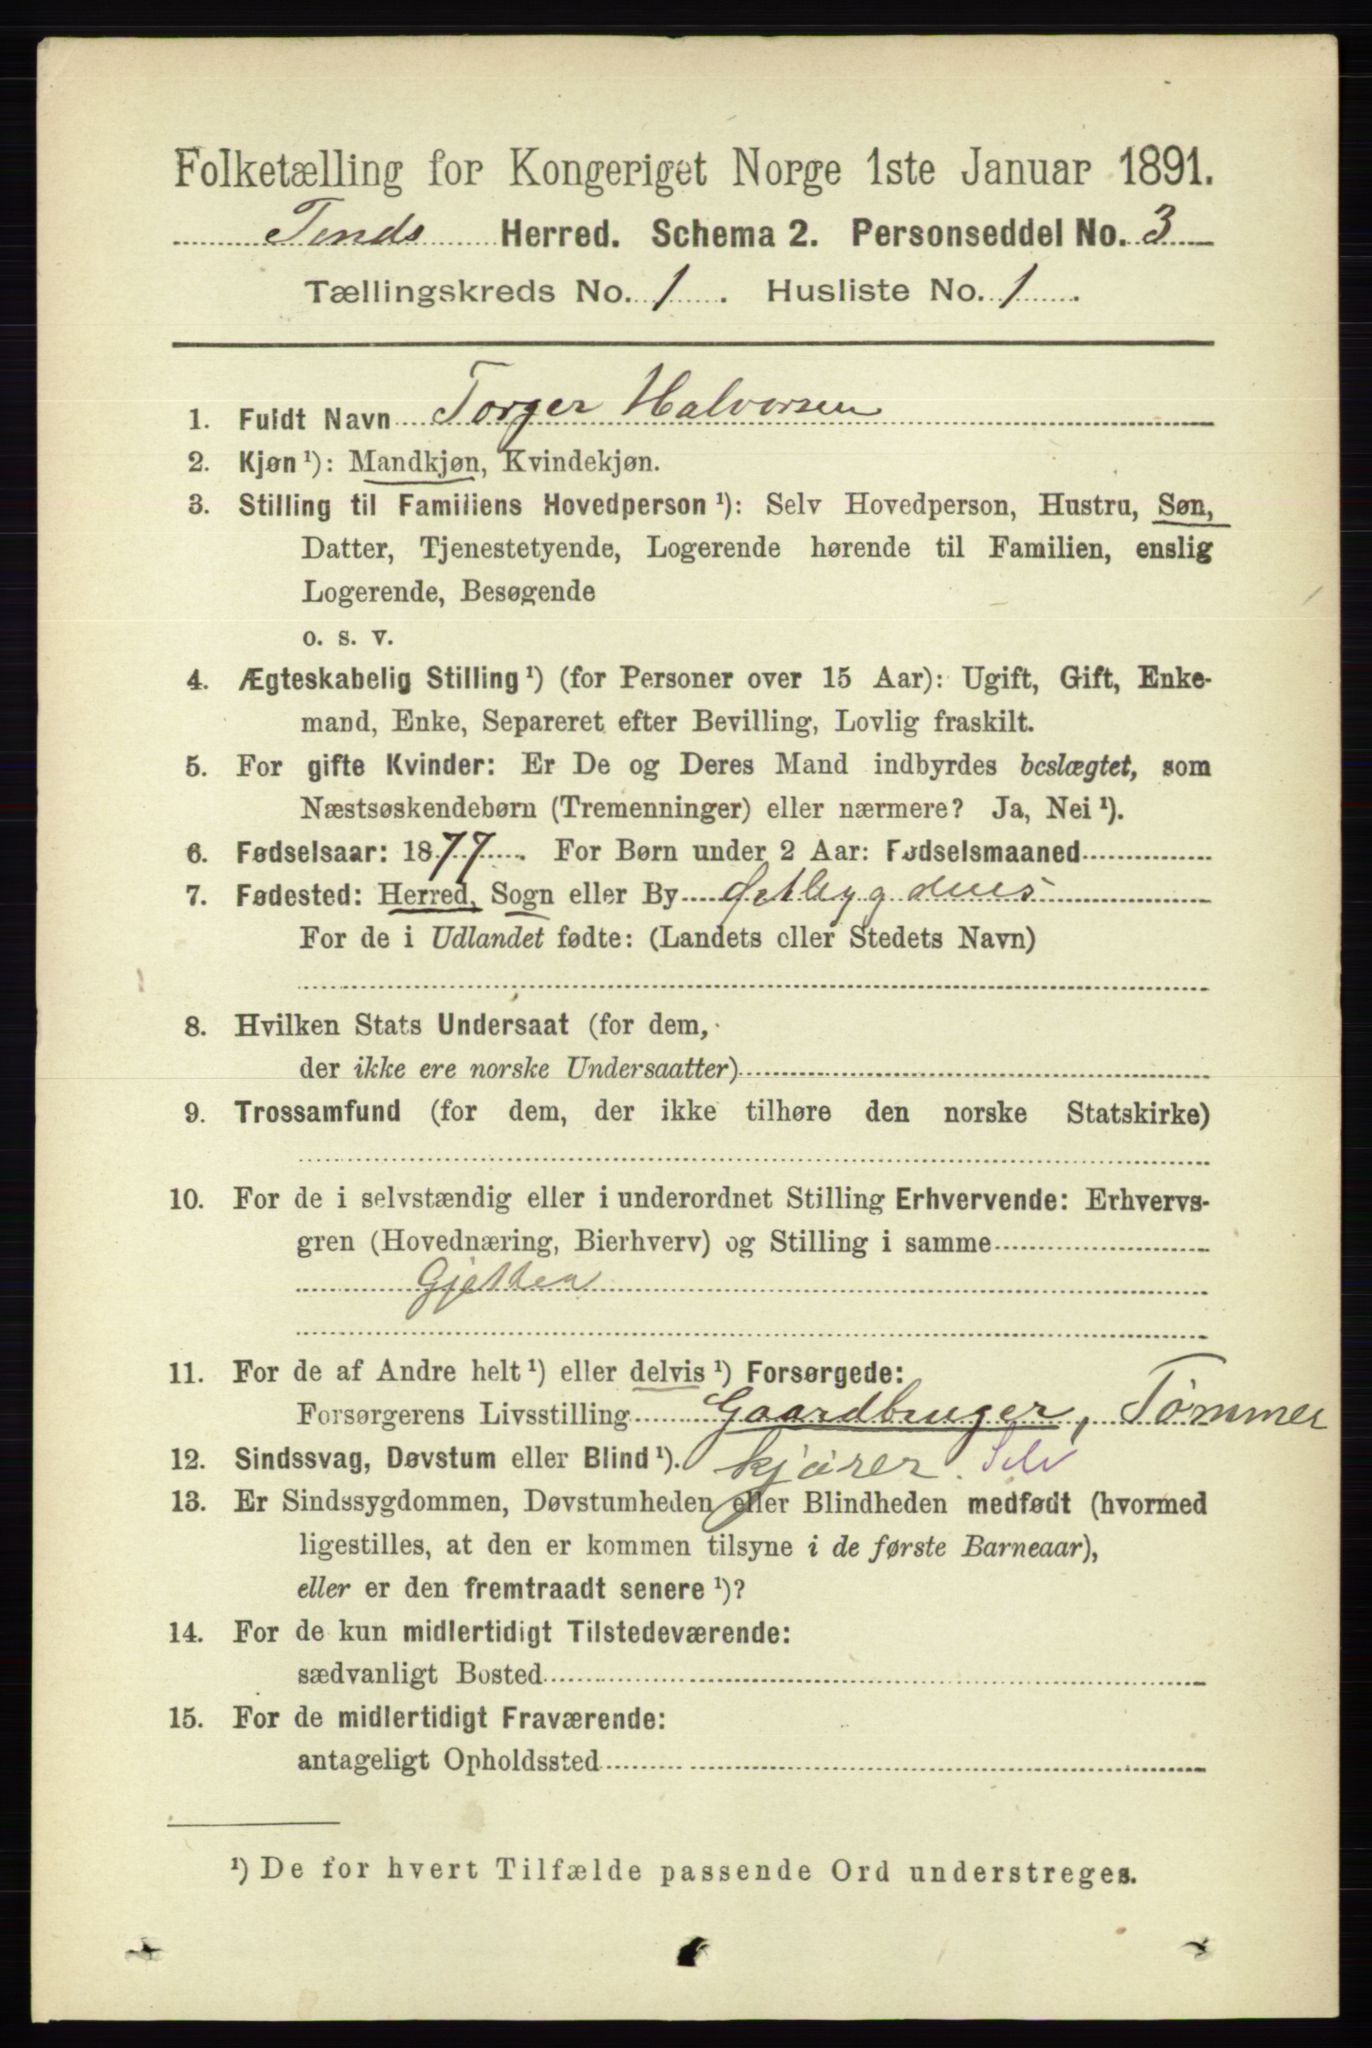 Folketælling for Kongeriget Norge 1ste Januar 1891.
Tinds Herred. Schema 2. Personseddel No. 3
Tællingskreds No. 1. Husliste No. 1.
1. Fuldt Navn Torger Halvorsen
2. Kjøn ¹): Mandkjøn, Kvindekjøn.
3. Stilling til Familiens Hovedperson ¹): Selv Hovedperson, Hustru, Søn,
Datter, Tjenestetyende, Logerende hørende til Familien, enslig
Logerende, Besøgende
o. s. v.
4. Ægteskabelig Stilling ¹) (for Personer over 15 Aar): Ugift, Gift, Enke-
mand, Enke, Separeret efter Bevilling, Lovlig fraskilt.
5. For gifte Kvinder: Er De og Deres Mand indbyrdes beslægtet, som
Næstsøskendebørn (Tremenninger) eller nærmere? Ja, Nei ¹).
6. Fødselsaar: 1877. For Børn under 2 Aar: Fødselsmaaned
7. Fødested: Herred, Sogn eller By Østbygdens
For de i Udlandet fødte: (Landets eller Stedets Navn)
8. Hvilken Stats Undersaat (for dem,
der ikke ere norske Undersaatter)
9. Trossamfund (for dem, der ikke tilhøre den norske Statskirke)
10. For de i selvstændig eller i underordnet Stilling Erhvervende: Erhvervs-
gren (Hovednæring, Bierhverv) og Stilling i samme
Gjetter
11. For de af Andre helt ¹) eller delvis ¹) Forsørgede:
Forsørgerens Livsstilling Gaardbruger, Tømmer
12. Sindssvag, Døvstum eller Blind ¹). kjører. Selv
13. Er Sindssygdommen, Døvstumheden eller Blindheden medfødt (hvormed
ligestilles, at den er kommen tilsyne i de første Barneaar),
eller er den fremtraadt senere ¹)?
14. For de kun midlertidigt Tilstedeværende:
sædvanligt Bosted
15. For de midlertidigt Fraværende:
antageligt Opholdssted
¹) De for hvert Tilfælde passende Ord understreges.